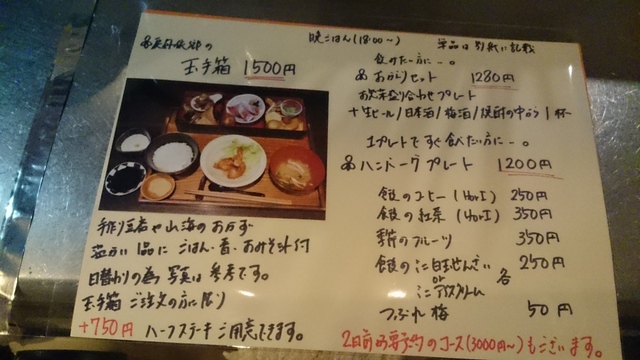 晩ごはん(18:00〜)
単品は別紙に記載
玉手箱 1500円
手作り豆腐や山海のおかず
温かい1品に ごはん・香・おみそ汁付
日替わりの為 写真は参考です。
玉手箱 ご注文の方に限り
+750円 ハーフステーキ ご用意できます。
飲みたい方に-。
あがりセット 1280円
お惣菜盛り合わせプレート
+生ビール/日本酒/梅酒/焼酎の中から1杯
1プレートですぐ食べたい方に-。
ハンバーグプレート 1200円
食後のコーヒー(HorI) 250円
食後の紅茶(HorI) 350円
季節のフルーツ 350円
食後のミニ白玉ぜんざい 各250円
or
ミニアイスクリーム
つぶれ梅 50円
2日前要予約のコース(3000円〜)もございます。